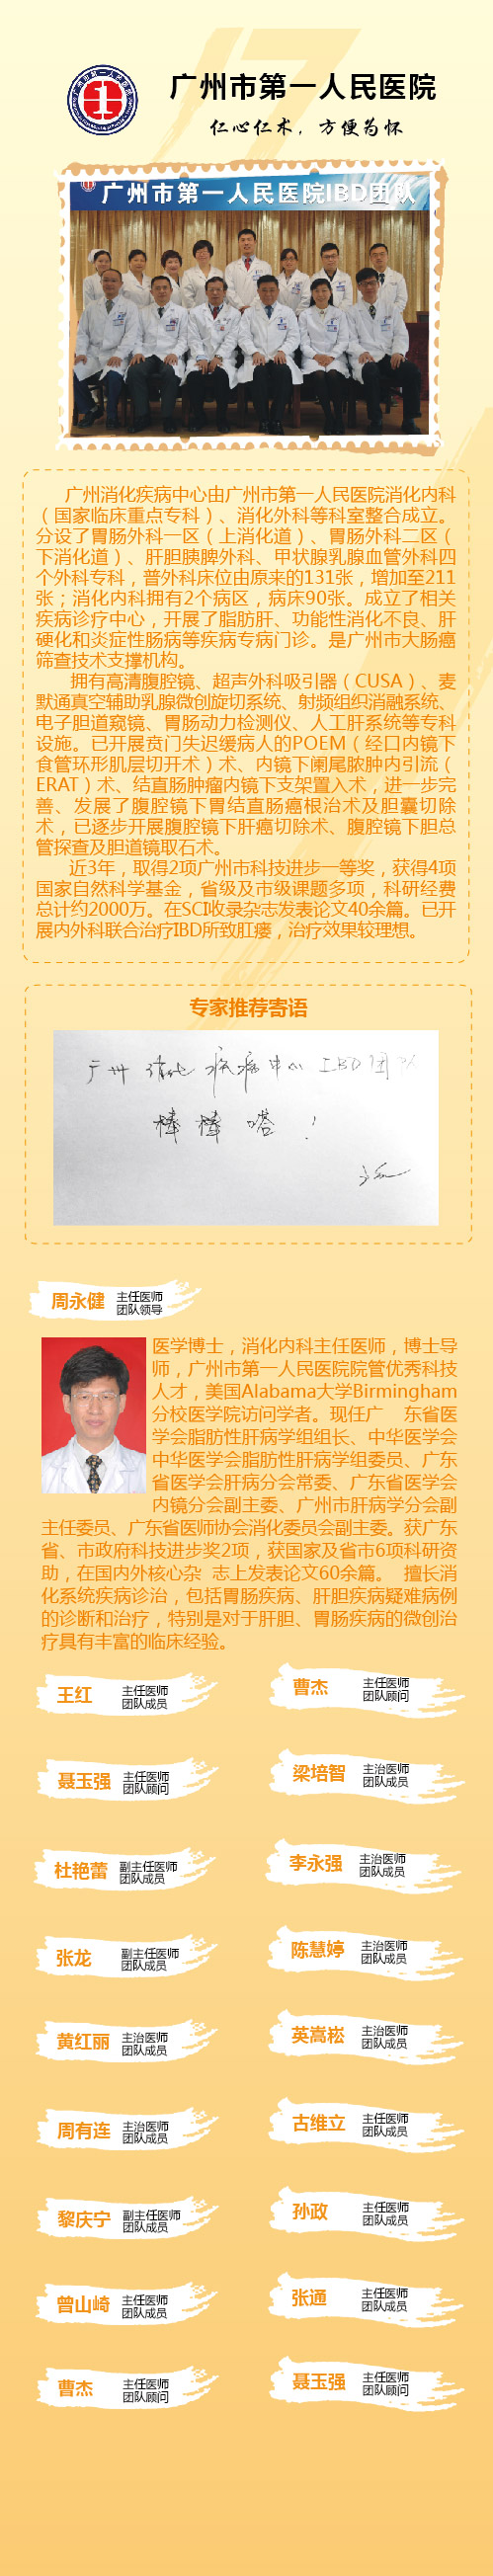 广州市第一人民医院
仁心仁术，方便为怀
广州市第一人民医院IBD团队
广州消化疾病中心由广州市第一人民医院消化内科
（国家临床重点专科）、消化外科等科室整合成立。
分设了胃肠外科一区（上消化道）、胃肠外科二区（
下消化道）、肝胆胰脾外科、甲状腺乳腺血管外科四
个外科专科，普外科床位由原来的131张，增加至211
张；消化内科拥有2个病区，病床90张。成立了相关
疾病诊疗中心，开展了脂肪肝、功能性消化不良、肝
硬化和炎症性肠病等疾病专病门诊。是广州市大肠癌
筛查技术支撑机构。
拥有高清腹腔镜、超声外科吸引器（CUSA）、麦
默通真空辅助乳腺微创旋切系统、射频组织消融系统、
电子胆道窥镜、胃肠动力检测仪、人工肝系统等专科
设施。已开展贲门失迟缓病人的POEM（经口内镜下
食管环形肌层切开术）术、内镜下阑尾脓肿内引流（
ERAT）术、结直肠肿瘤内镜下支架置入术，进一步完
善、发展了腹腔镜下胃结直肠癌根治术及胆囊切除
术，已逐步开展腹腔镜下肝癌切除术、腹腔镜下胆总
管探查及胆道镜取石术。
近3年，取得2项广州市科技进步一等奖，获得4项
国家自然科学基金，省级及市级课题多项，科研经费
总计约2000万。在SCI收录杂志发表论文40余篇。已开
展内外科联合治疗IBD所致肛瘘，治疗效果较理想。
专家推荐寄语
广州消化疾病中心IBD团队
棒棒嗒！
周永健 主任医师
团队领导
医学博士，消化内科主任医师，博士导
师，广州市第一人民医院院管优秀科技
人才，美国Alabama大学Birmingham
分校医学院访问学者。现任广 东省医
学会脂肪性肝病学组组长、中华医学会
中华医学会脂肪性肝病学组委员、广东
省医学会肝病分会常委、广东省医学会
内镜分会副主委、广州市肝病学分会副
主任委员、广东省医师协会消化委员会副主委。获广东
省、市政府科技进步奖2项，获国家及省市6项科研资
助，在国内外核心杂 志上发表论文60余篇。 擅长消
化系统疾病诊治，包括胃肠疾病、肝胆疾病疑难病例
的诊断和治疗，特别是对于肝胆、胃肠疾病的微创治
疗具有丰富的临床经验。
王红 主任医师
团队成员
曹杰 主任医师
团队顾问
聂玉强 主任医师
团队顾问
梁培智 主治医师
团队成员
杜艳蕾 副主任医师
团队成员
李永强 主治医师
团队成员
张龙 副主任医师
团队成员
陈慧婷 主治医师
团队成员
黄红丽 主治医师
团队成员
英嵩崧 主治医师
团队成员
周有连 主治医师
团队成员
古维立 主任医师
团队成员
黎庆宁 副主任医师
团队成员
孙政 主任医师
团队成员
曾山崎 主任医师
团队成员
张通 主任医师
团队成员
曹杰 主任医师
团队顾问
聂玉强 主任医师
团队顾问